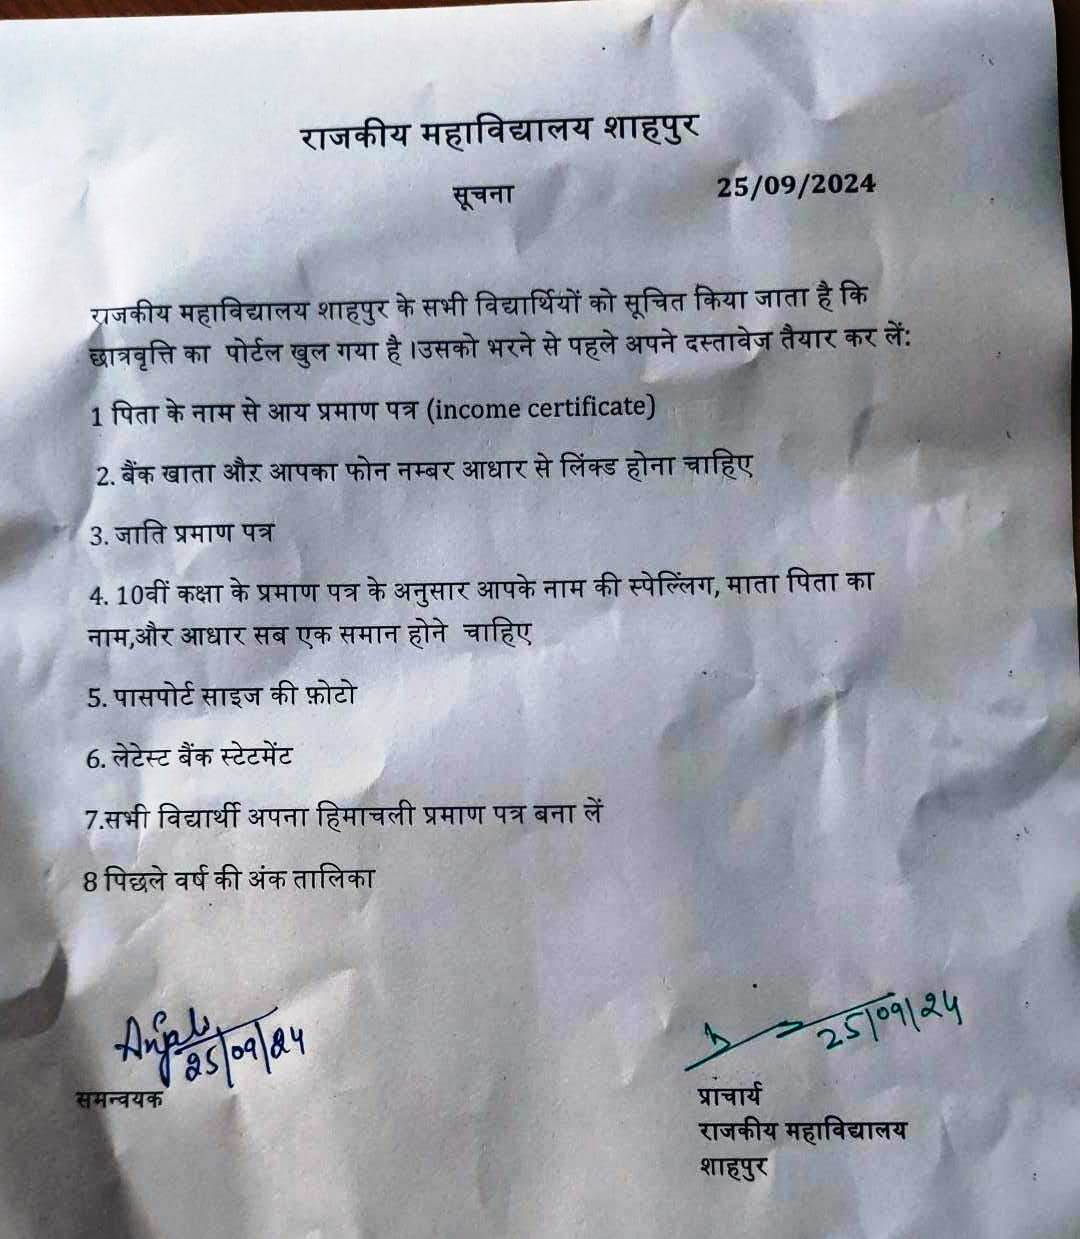 राजकीय महाविद्यालय शाहपुर
सूचना 25/09/2024
राजकीय महाविद्यालय शाहपुर के सभी विद्यार्थियों को सूचित किया जाता है कि
छात्रवृत्ति का पोर्टल खुल गया है ।उसको भरने से पहले अपने दस्तावेज तैयार कर लें:
1 पिता के नाम से आय प्रमाण पत्र (income certificate)
2. बैंक खाता और आपका फोन नम्बर आधार से लिंक्ड होना चाहिए
3. जाति प्रमाण पत्र
4. 10वीं कक्षा के प्रमाण पत्र के अनुसार आपके नाम की स्पेल्लिंग, माता पिता का
नाम,और आधार सब एक समान होने चाहिए
5. पासपोर्ट साइज की फ़ोटो
6. लेटेस्ट बैंक स्टेटमेंट
7.सभी विद्यार्थी अपना हिमाचली प्रमाण पत्र बना लें
8 पिछले वर्ष की अंक तालिका
Anjali
25/09/24
समन्वयक
25/09/24
प्राचार्य
राजकीय महाविद्यालय
शाहपुर